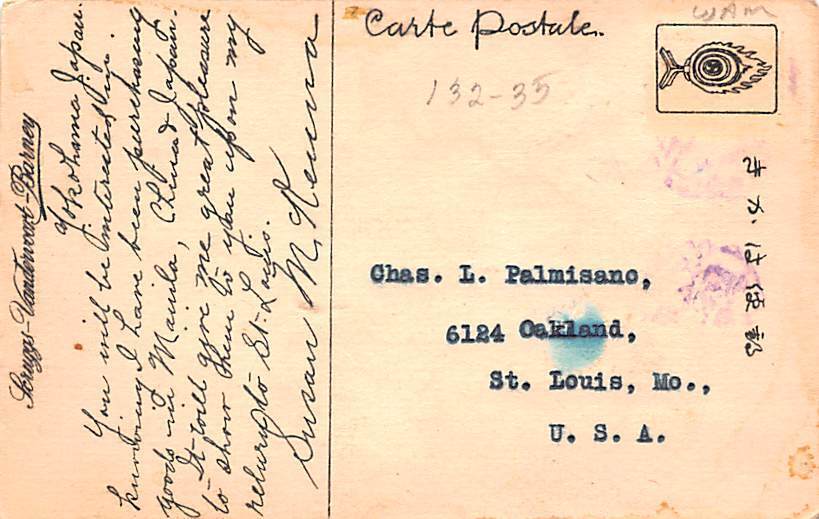 Carte Postale.
WAM
132-35
Scruggs-Vandervoort-Barney
Yokohama, Japan.
You will be interested in
knowing I have been purchasing
goods in Manila, China & Japan.
It will give me great pleasure
to show them to you upon my
return to St. Louis.
Susan M. Kenna
Chas. L. Palmisano,
6124 Oakland,
St. Louis, Mo.,
U. S. A.